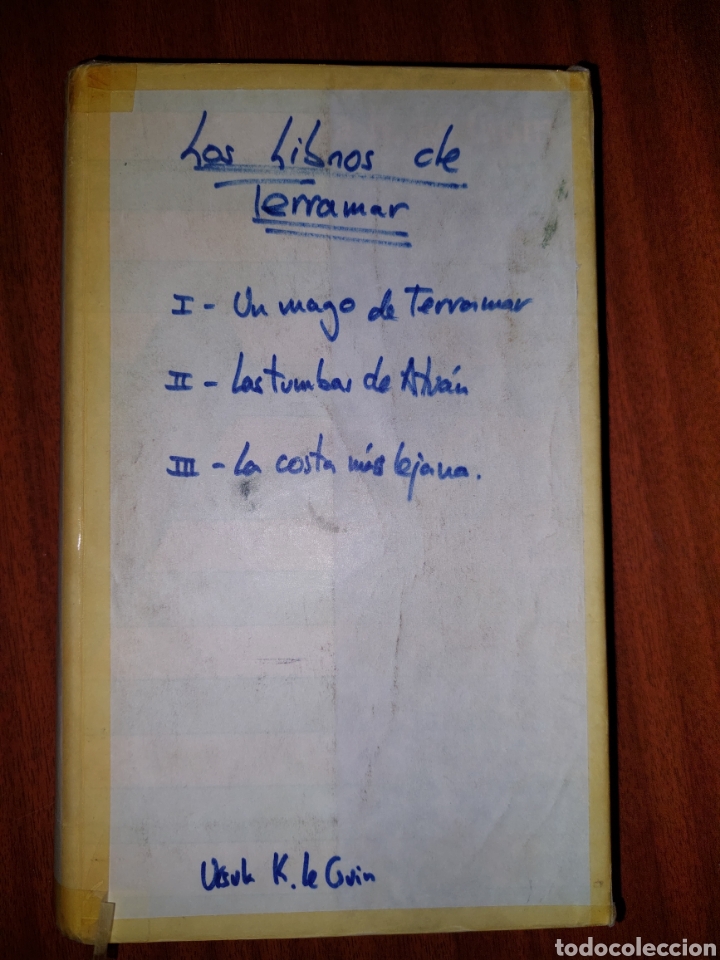 Los Libros de
Terramar
I - Un mago de Terramar
II - Las tumbas de Atuán
III - La costa más lejana.
Ursula K. le Guin
todocoleccion